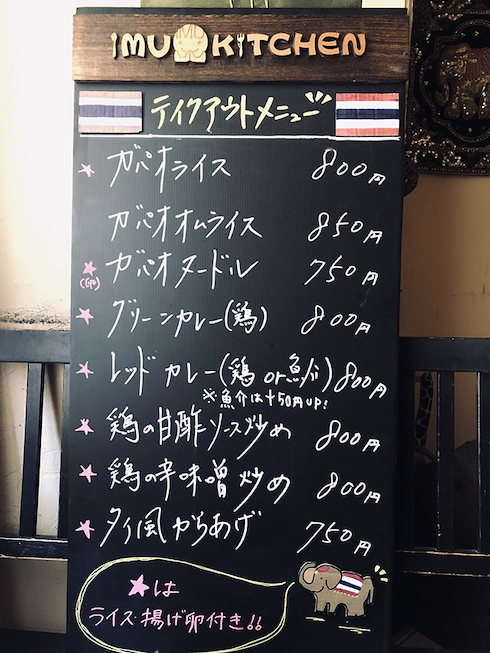 IMU KITCHEN
テイクアウトメニュー
★ ガパオライス 800円
ガパオオムライス 850円
★ ガパオヌードル 750円
★ グリーンカレー(鶏) 800円
★ レッドカレー(鶏or魚介) 800円
※魚介は+50円UP!
★ 鶏の甘酢ソース炒め 800円
★ 鶏の辛味噌炒め 800円
★ タイ風からあげ 750円
★は
ライス・揚げ卵付き!!